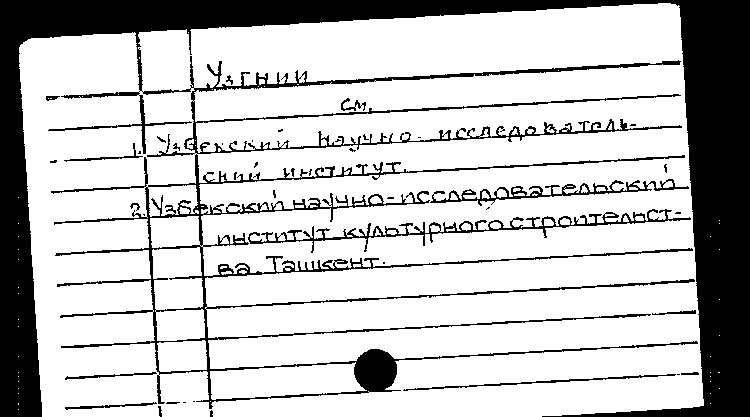 УзГНИИ
см.
1. Узбекский научно-исследователь-
ский институт.
2. Узбекский научно-исследовательский
институт культурного строительст-
ва. Ташкент.